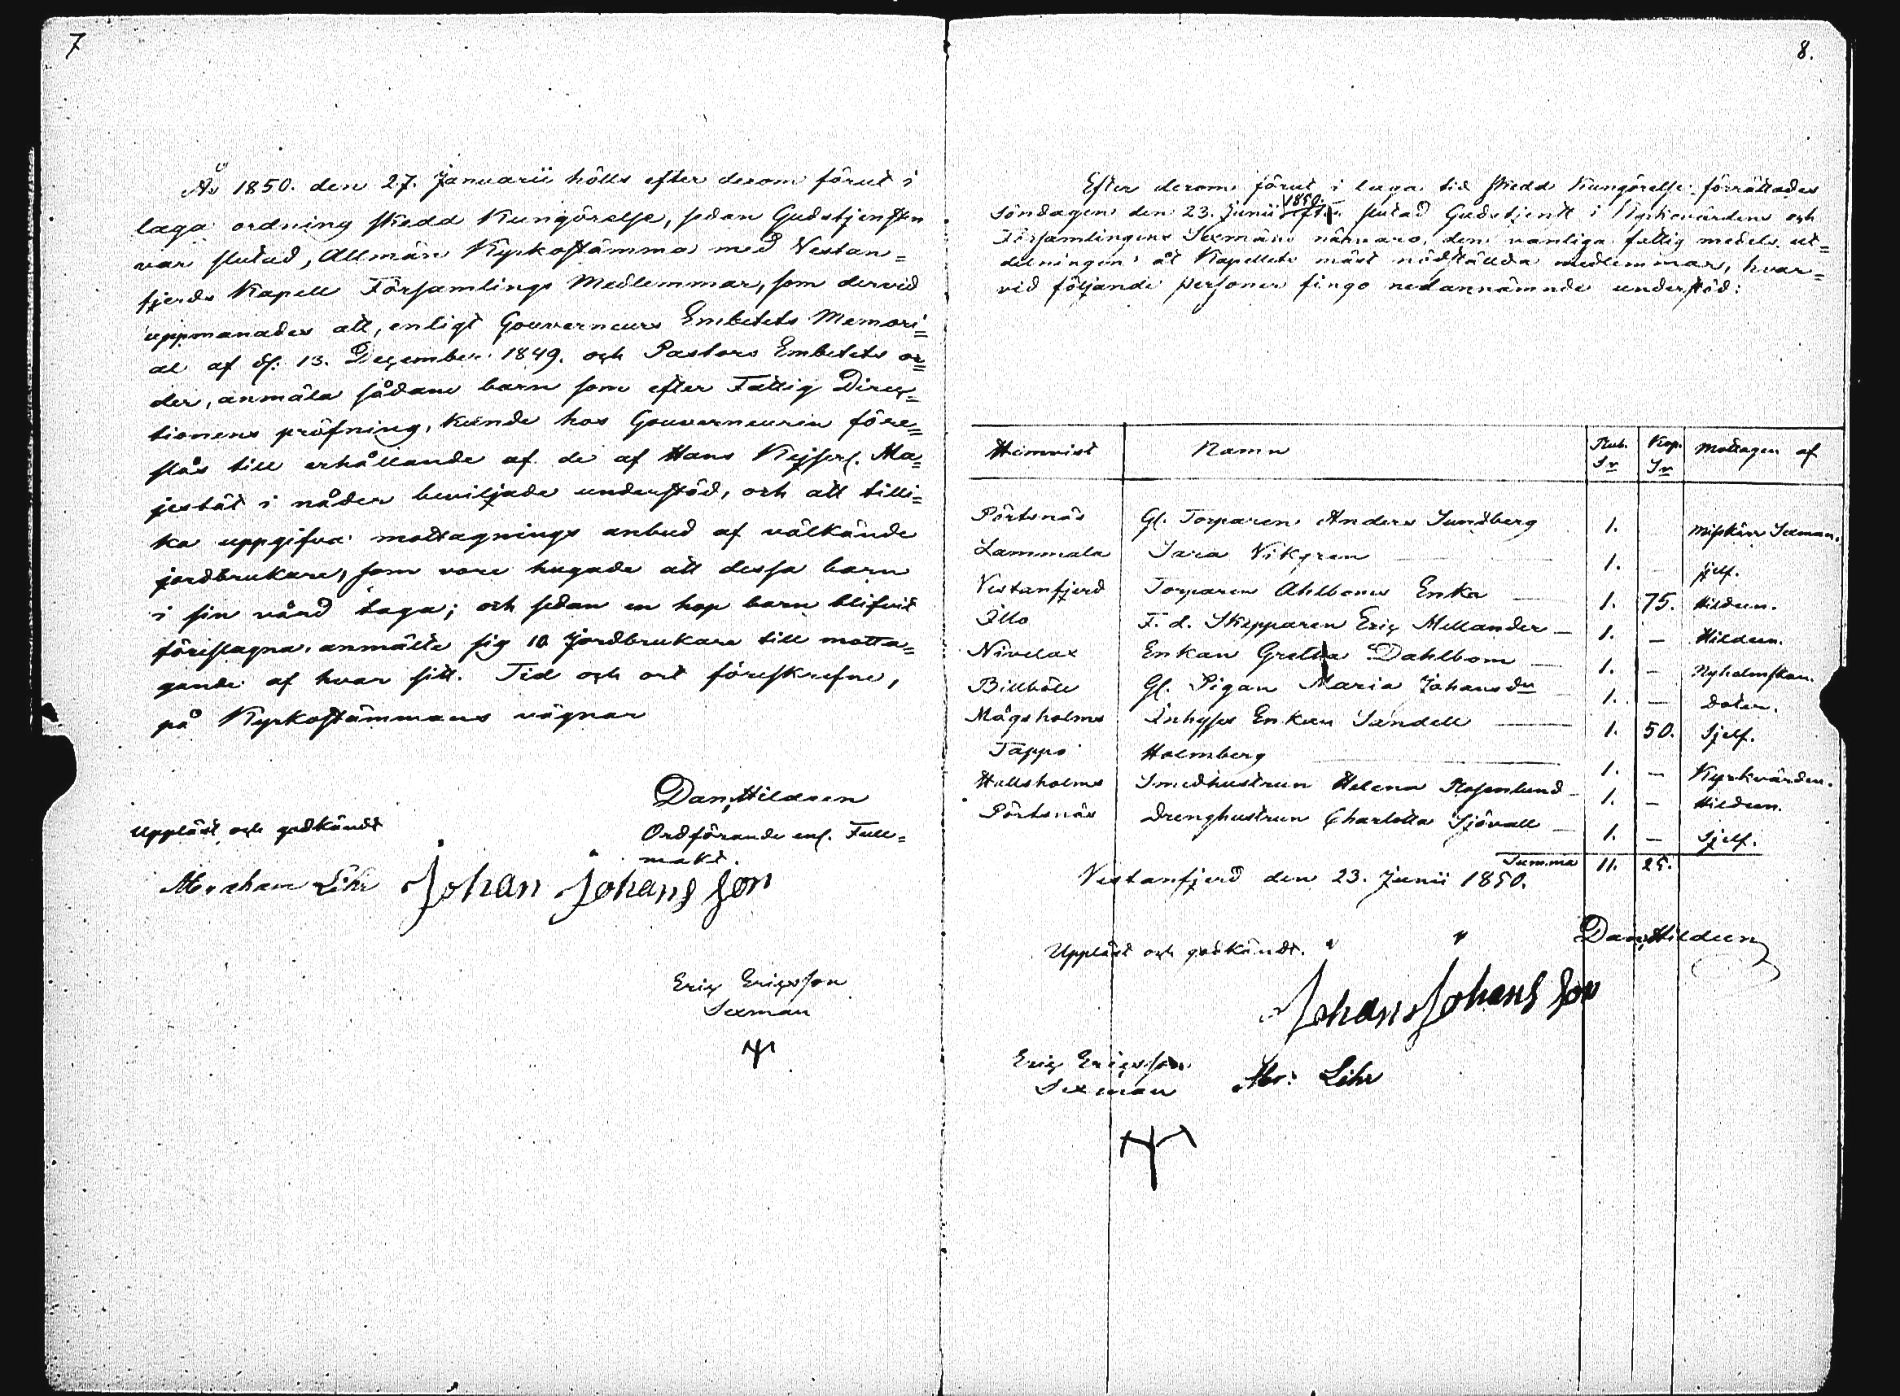 7
År 1850. den 27. Januarii hölls efter derom förut i
laga ordning skedd Kungörelse, sedan Gudstjensten
var slutad, Allmän Kyrkostämma med Vestan=
fjerds Kapell Församlings Medlemmar, som dervid
uppmanades att, enligt Gouverneurs Embetets Memori=
al af d. 13. December 1849. och Pastors Embetets or=
der, anmäla sådane barn som efter Fattig Direc=
tionens pröfning, kunde hos Gouverneuren före=
slås till erhållande af de af Hans Kejserl. Ma=
jestät i nåder beviljade understöd, och att tilli=
ka uppgifva mottagnings anbud af välkände
jordbrukare, som vore hugade att dessa barn
i sin vård taga; och sedan en hop barn blifvit
föreslagna, anmälte sig 10 Jordbrukare till motta=
gande af hvar sitt. Tid och ort föreskrefne,
på Kyrkostämmans vägnar
Dan. Hildeen
Ordförande enl. Full=
makt.
Uppläst och godkändt
Abraham Lihr Johan Johansson
Eric Ericsson
Sexman
8.
Efter derom förut i laga tid skedd Kungörelse förrättades
Söndagen den 23. Junii 1850. slutad Gudstjenst i Kyrkovärdens och
Församlingens Sexmäns närvaro, den vanliga fattig medels ut=
delningen åt Kapellets mäst nödställda medlemmar, hvar=
vid följande personer fingo nedannämnde understöd:
Hemvist Namn Rub. Sr Kop. Sr Mottagen af
Pörtsnäs Gl. Torparen Anders Sundberg 1. Misskärs Sexman.
Lammala Sara Vikgren 1. – sjelf.
Vestanfjerd Torparen Ahlboms Enka 1. 75. Hildeen.
Illo F. d. Skepparen Eric Mellander 1. – Hildeen.
Nivelax Enkan Gretha Dahlbom 1. – Nyholmskan.
Billböle Gl. Pigan Maria Johansdr 1. – Doter.
Mågsholms Inhyses Enkan Sandell 1. 50. Sjelf.
Tappo Holmberg 1. – Kyrkvärden.
Hellsholms Smedhustrun Helena Rosenlund 1. – Hildeen.
Pörtsnäs Drenghustrun Charlotta Sjövall 1. – Sjelf.
Summa 11. 25.
Vestanfjerd den 23. Junii 1850.
Dan. Hildeen
Uppläst och godkändt.
Johan Johansson
Eric Ericsson Abr: Lihr
Sexman